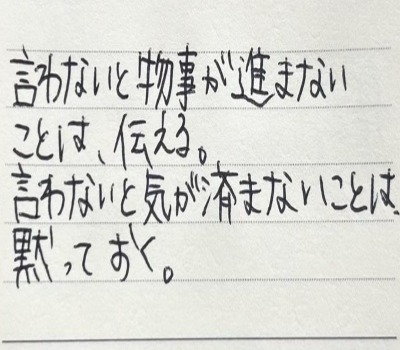 言わないと物事が進まない
ことは、伝える。
言わないと気が済まないことは、
黙っておく。